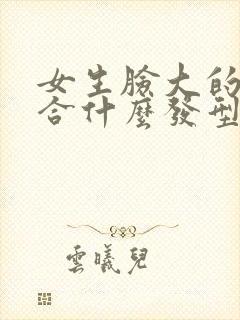 女生臉大的
合什麼發型
雲曦兒